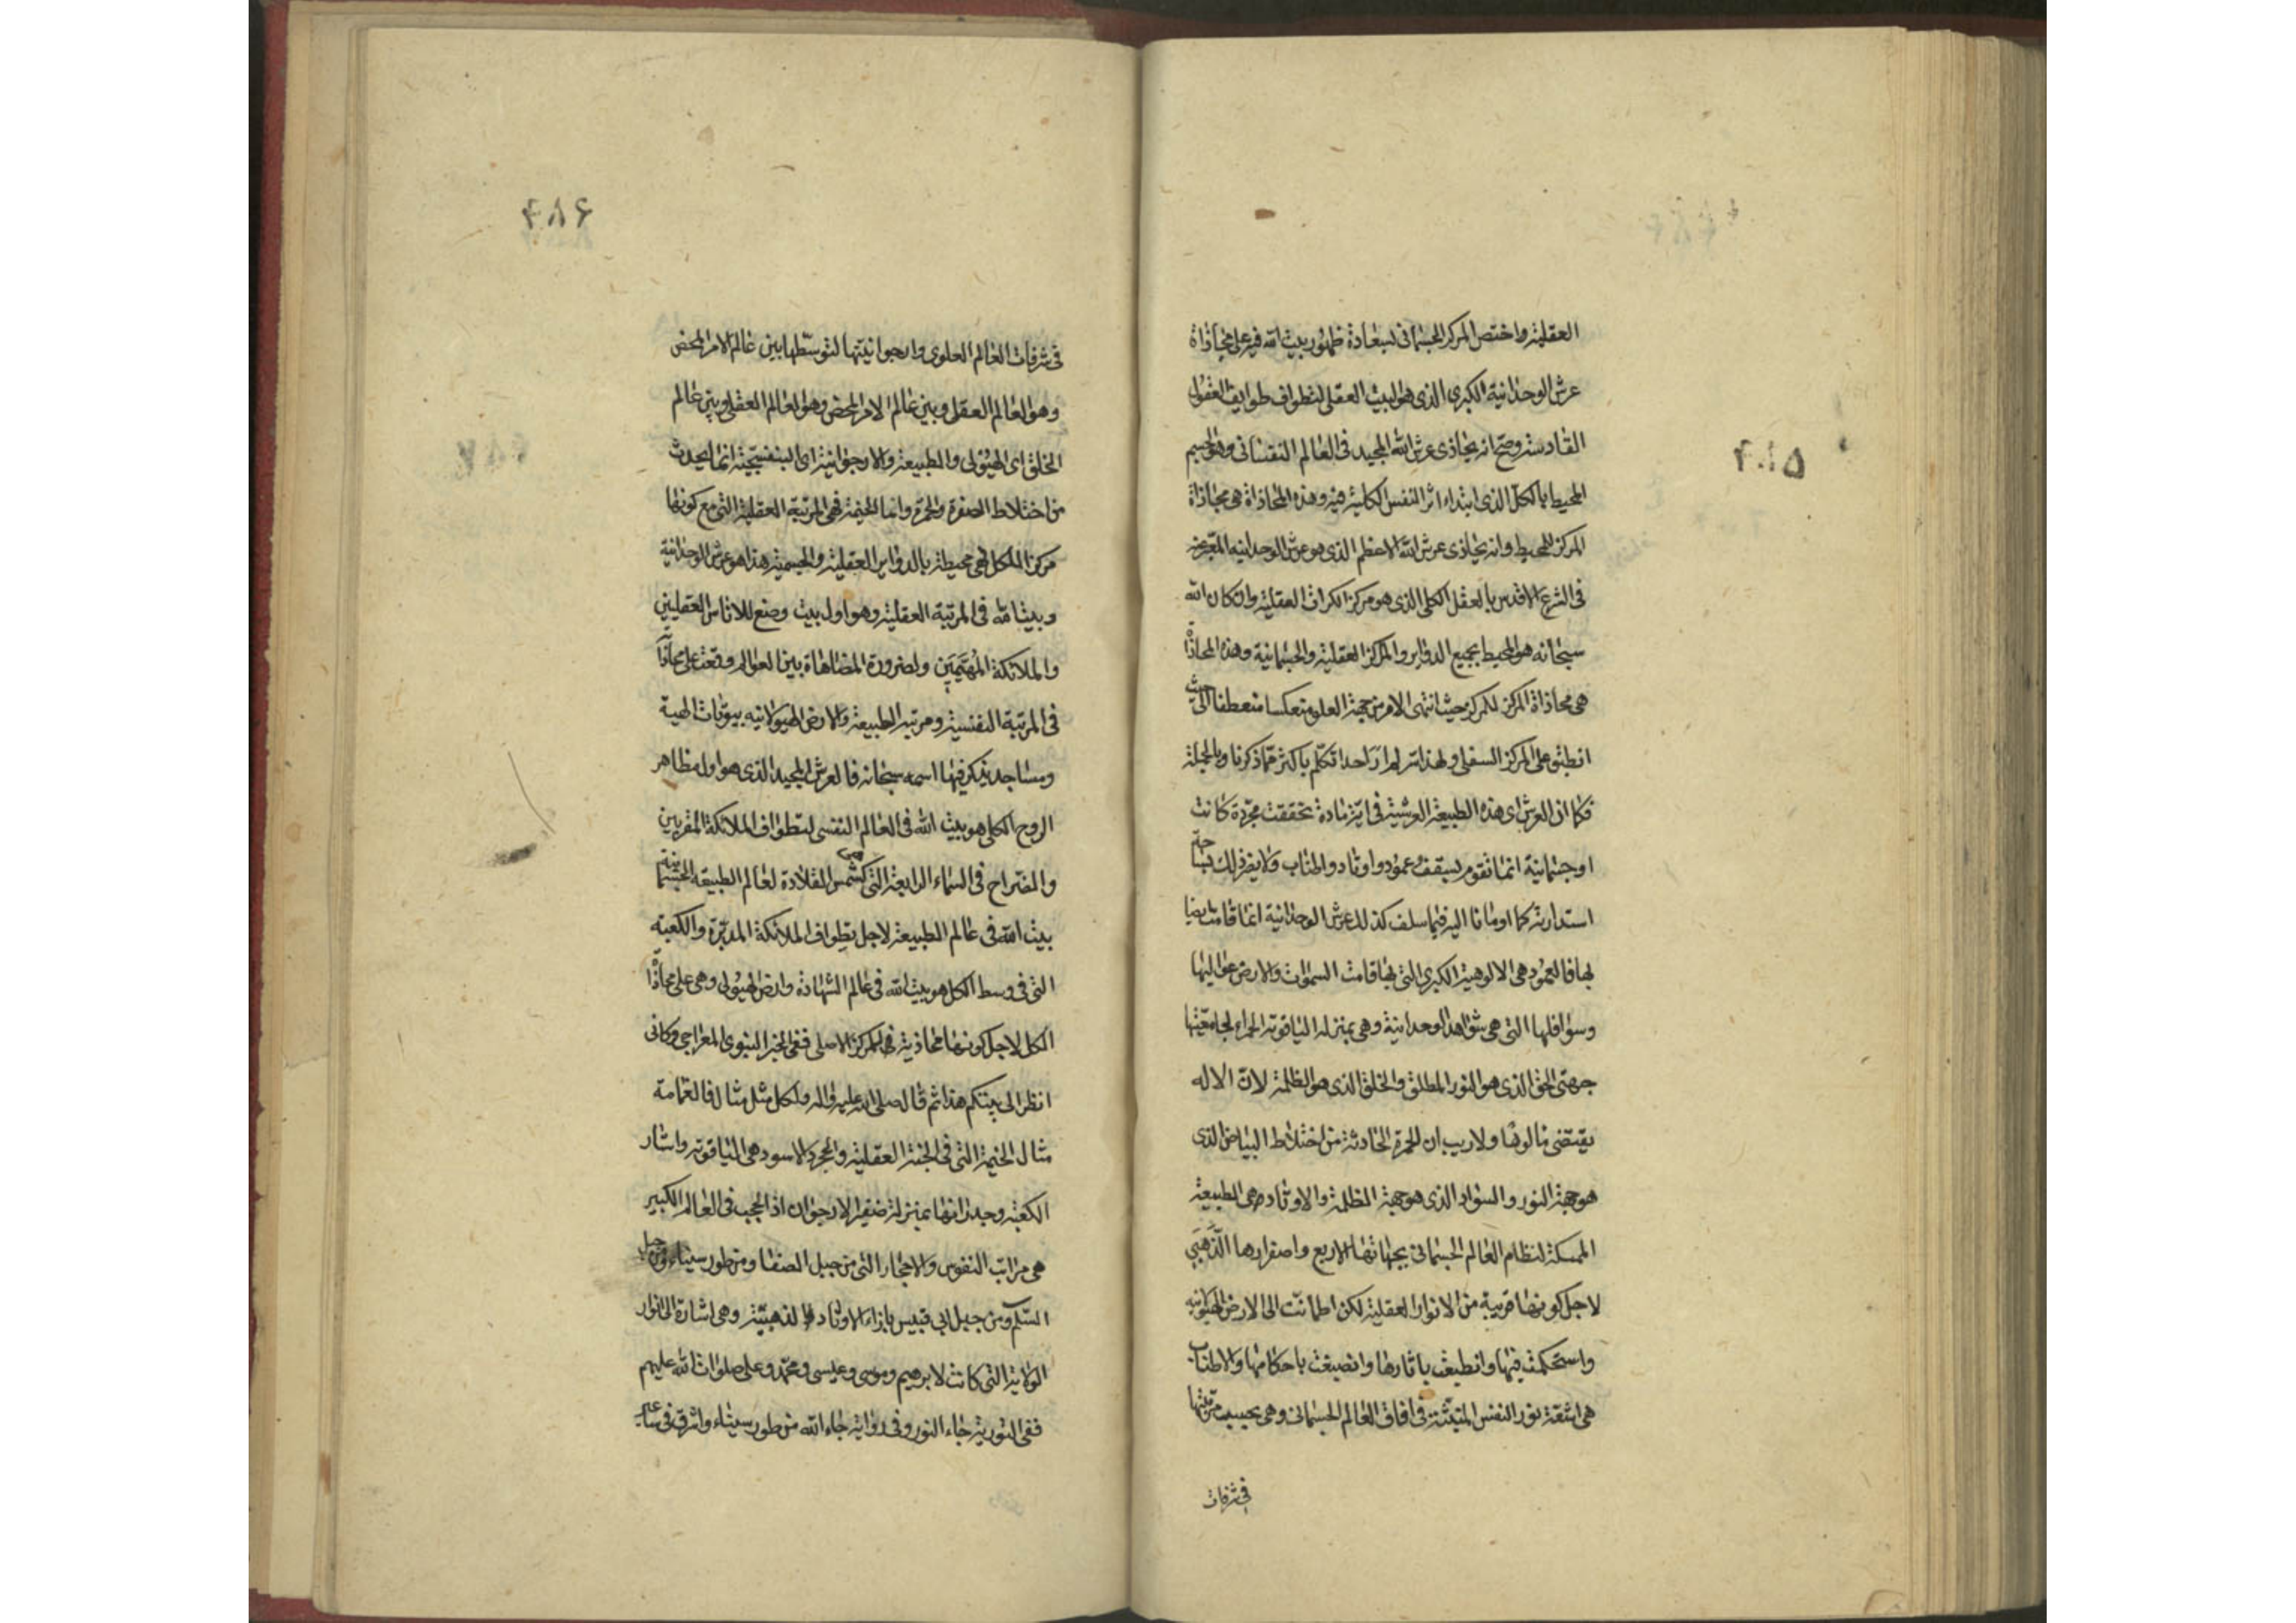 العقلية واختص المركز الجسمانى بسعادة ظهور بيت الله فيه على محاذاة
عرش الوحدانية الكبرى الذى هو البيت العقلى لتطواف طوايف العقول
القادسة وصح انه يحاذى عرش الله المجيد فى العالم النفسانى وهو الجسم
المحيط بالكل الذى ابتداء اثر النفس الكلية فيه وهذه المحاذاة هى محاذاة
المركز للمحيط وانه يحاذى عرش الله الاعظم الذى هو عرش الوحدانيه المعبر عنه
فى الشرع الاقدس بالعقل الكلى الذى هو مركز الكرات العقلية وان كان الله
سبحانه هو المحيط بجميع الدواير والمراكز العقلية والجسمانية وهذه المحاذاة
هى محاذاة المركز لمركز حيث انتهى الامر من جهة العلو منعكسا منعطفا الى حيث
انطبق على المركز السفلى ولهذا سر لم ار احدا تكلم باكثر مما ذكرنا وبالجملة
فكما ان العرش اى هذه الطبيعة العرشية فى اية مادة تحققت مجردة كانت
او جسمانية انما تقوم بسقف وعمود واوتاد واطناب ولا يضر ذلك
استدارته كما اومانا اليه فيما سلف كذلك عرش الوحدانية انما قامت
بها فالعمود هى الالوهية الكبرى التى بها قامت السموات والارض عواليها
وسوافلها التى هى شواهد الوحدانية وهى بمنزلة الياقوتة الحمراء لجامعيتها
جهتى الحق الذى هو النور المطلق والخلق الذى هو الظلمة لان الاله
يقتضى مالوها ولا ريب ان الحمرة الحادثة من اختلاط البياض الذى
هو جهة النور والسواد الذى هو جهة الظلمة والاوتاد هى الطبيعة
الممسكة لنظام العالم الجسمانى بجهاتها الاربع واصفرارها الذهبى
لاجل كونها قريبة من الانوار العقلية لكن اطمانت الى الارض الهيولانية
واستحكمت فيها وانطبعت باثارها وانصبغت باحكامها والاطناب
هى اشعة نور النفس المنبثة فى افاق العالم الجسمانى وهى بحسب مرتبتها
فى شرفات
۶۸۶
فى شرفات العالم العلوى وارجوانيتها لتوسطها بين عالم الامر المحض
وهو العالم العقل وبين عالم الامر المحض وهو العالم العقلى وبين عالم
الخلق اى الهيولى والطبيعة والارجوانية اى البنفسجية انما يحدث
من اختلاط الصفرة والحمرة واما الخيمة فهى المرتبة العقلية التى مع كونها
مركز الكل فهى محيطة بالدواير العقلية والجسمية هذا هو عرش الوحدانية
وبيت الله فى المرتبة العقلية وهو اول بيت وضع للاناس العقليين
والملائكة المهيمين ولضرورة المضاهاة بين العوالم وقعت على محاذاة
فى المرتبة النفسية ومرتبة الطبيعة والارض الهيولانيه بيوتات الهية
ومساجد يذكر فيها اسمه سبحانه فالعرش المجيد الذى هو اول مظاهر
الروح الكلى هو بيت الله فى العالم النفسى لتطواف الملائكة المقربين
والضراح فى السماء الرابعة التى هى كشمس القلادة لعالم الطبيعة الجسمانية
بيت الله فى عالم الطبيعة لاجل تطواف الملائكة المدبرة والكعبة
التى فى وسط الكل هو بيت الله فى عالم الشهادة وارض الهيولى وهى على محاذاة
الكل لاجل كونها محاذية للمركز الاصلى ففى الخبر النبوى المعراجى وكانى
انظر الى بيتكم هذا ثم قال صلى الله عليه واله ولكل مثل مثال فالغمامة
مثال الخيمة التى فى الجنة العقلية والحجر الاسود هى الياقوتة واستار
الكعبة وجدرانها بمنزلة ضفير الارجوان اذ الحجب فى العالم الكبير
هى مراتب النفوس والاحجار التى من جبل الصفا ومن طور سيناء ومن جبل
السلم ومن جبل ابى قبيس بازاء الاوتاد الذهبية وهى اشارة الى انوار
الولاية التى كانت لابرهيم وموسى وعيسى ومحمد وعلى صلوات الله عليهم
ففى التورية جاء النور وفى رواية جاء الله من طور سيناء واشرق فى ساعير